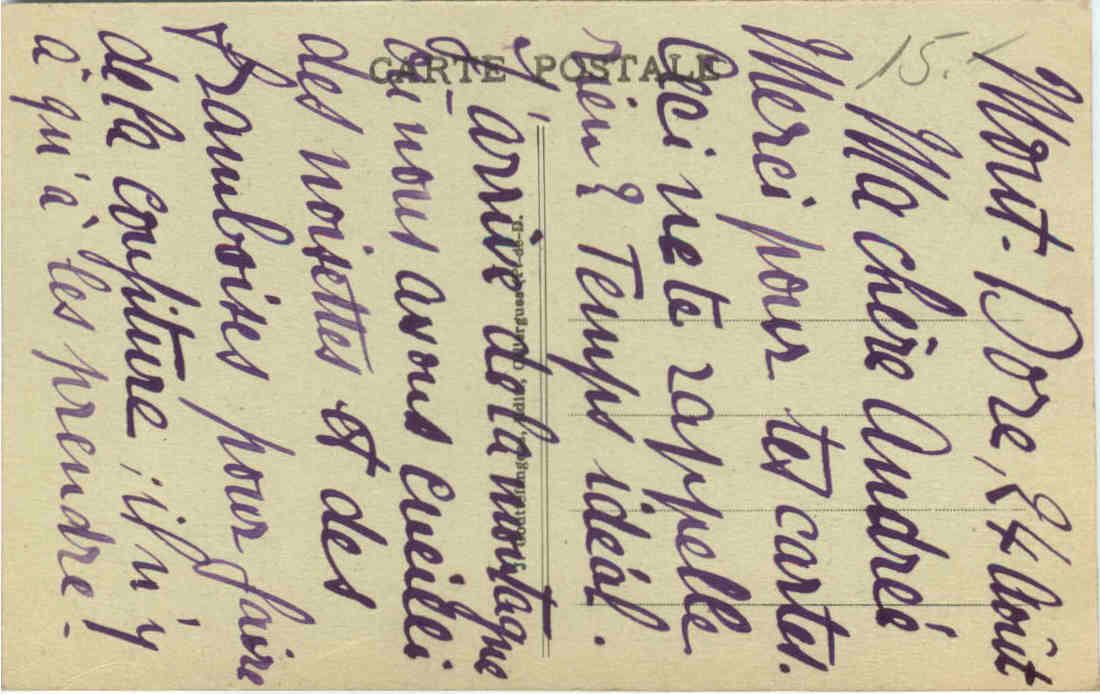 CARTE POSTALE
15.-
Mont-Dore, 24 Août
Ma chère Andrée
Merci pour tes cartes.
Ceci ne te rappelle
rien ? Temps idéal.
J'arrive de la montagne
où nous avons cueilli
des noisettes et des
framboises pour faire
de la confiture, il n'y
a qu'à les prendre.